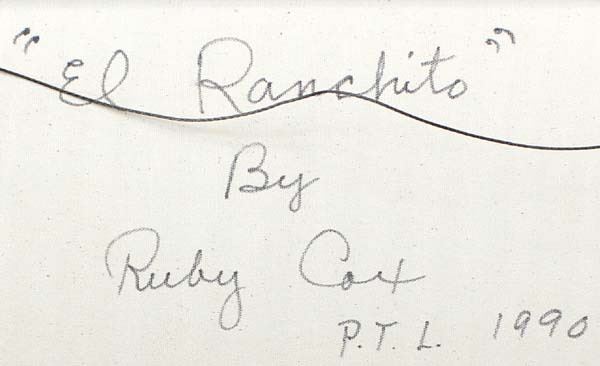 "El Ranchito"
By
Ruby Cox
P.T.L. 1990